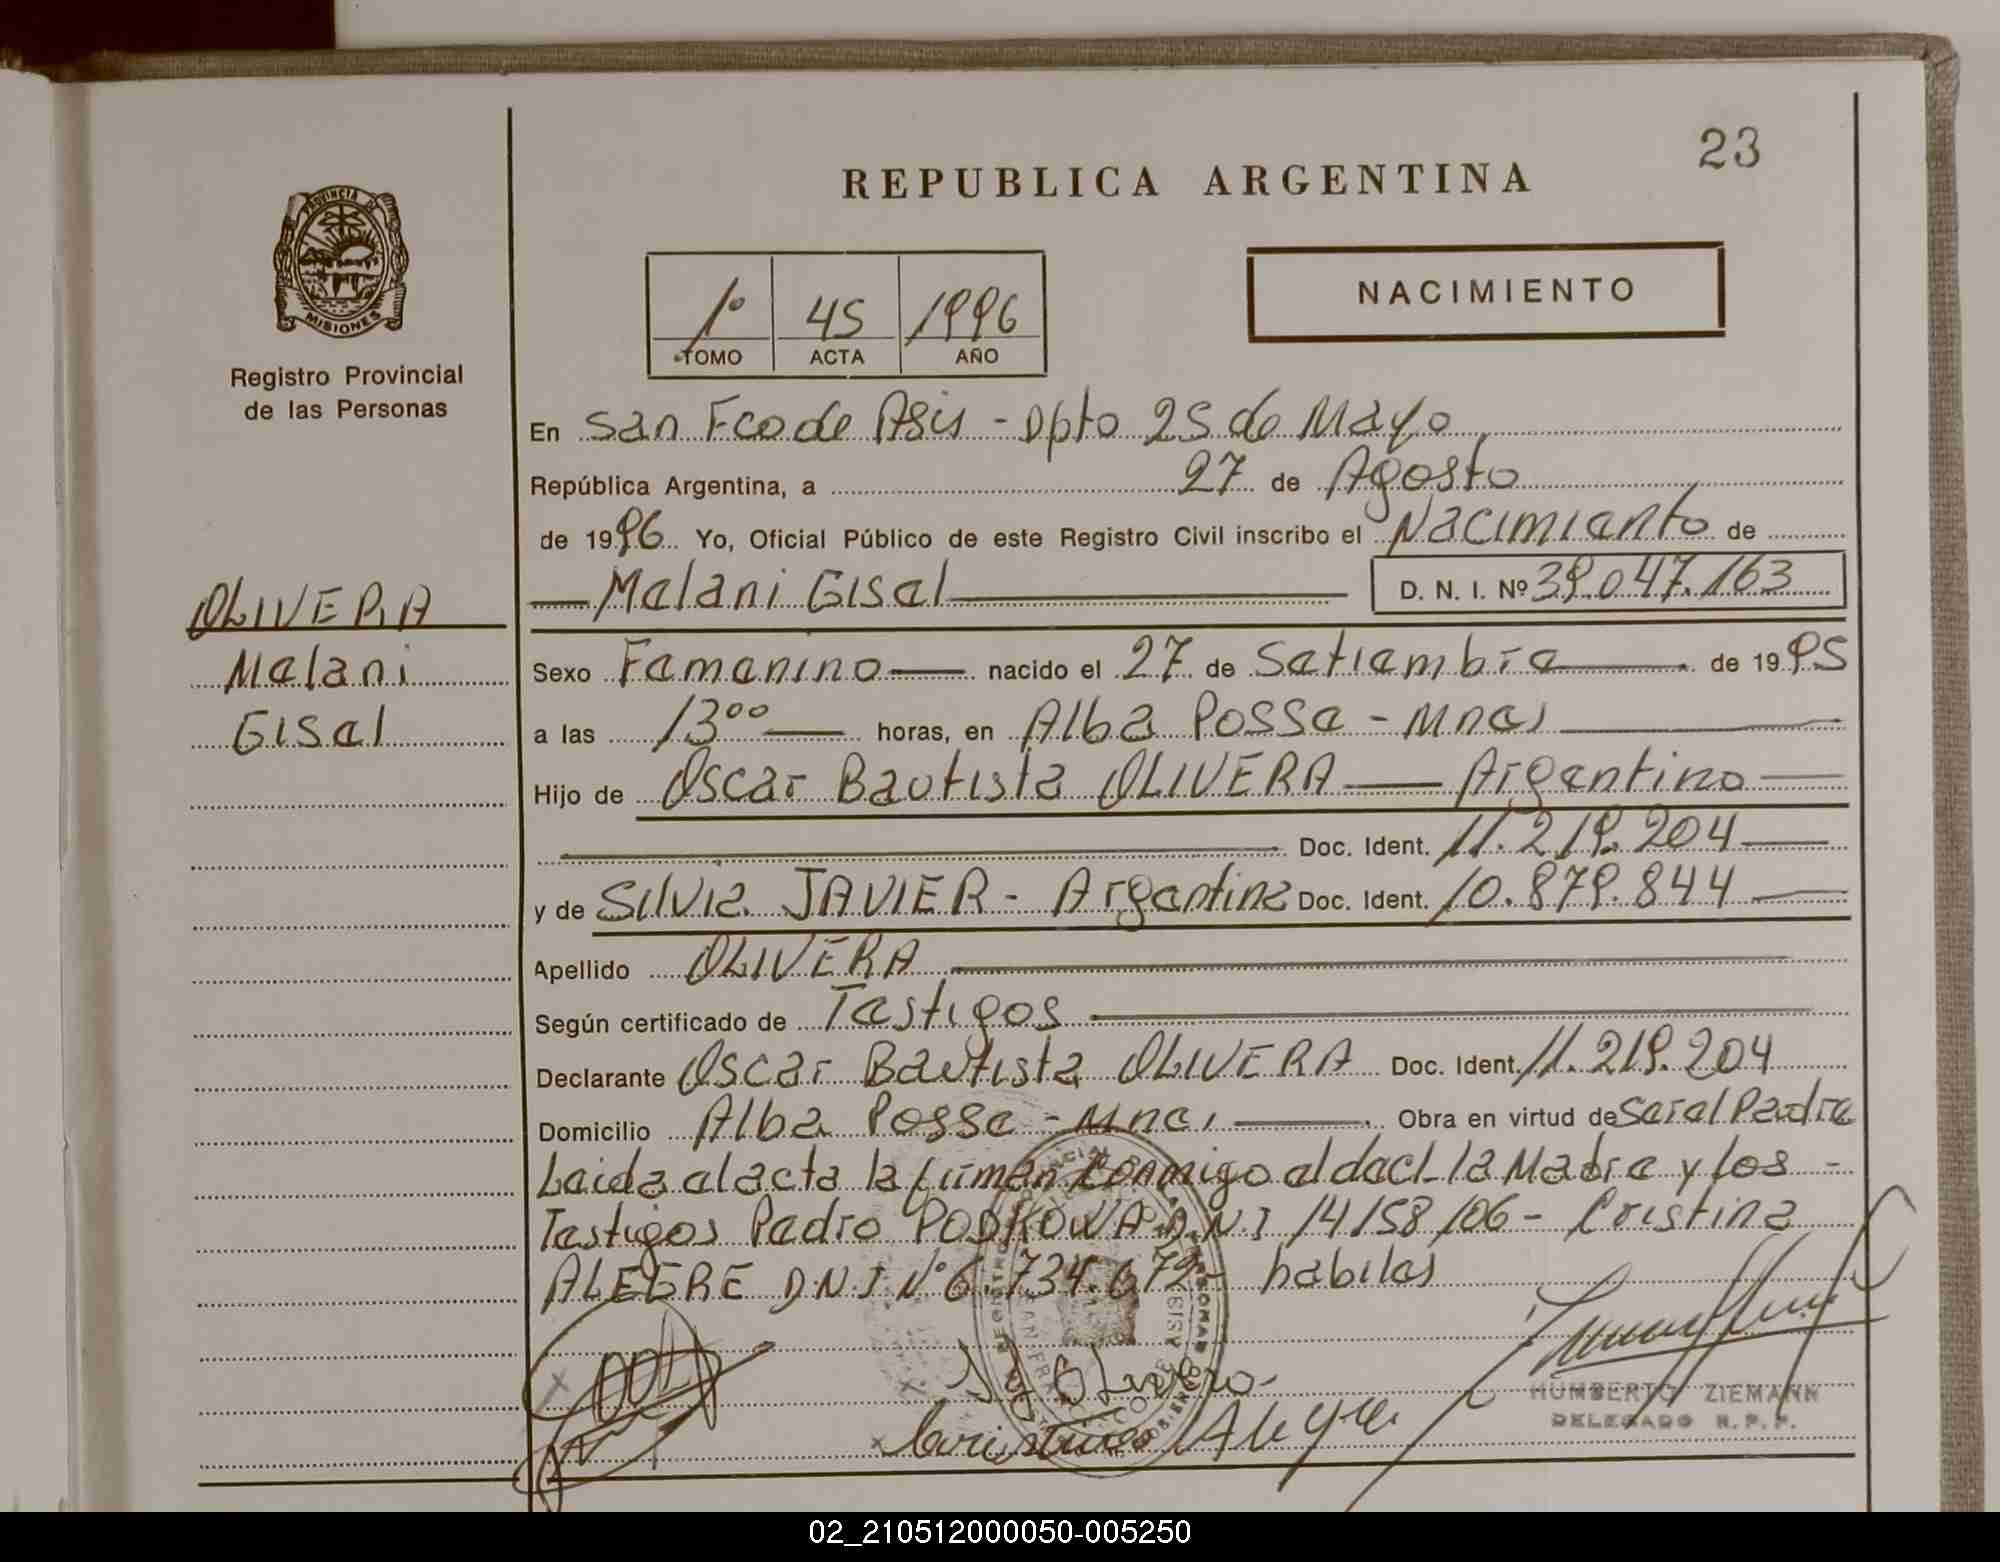 23
REPUBLICA ARGENTINA
PROVINCIA DE
MISIONES
Registro Provincial
de las Personas
1º 45 1996
TOMO ACTA AÑO
NACIMIENTO
En San Fco de Asis - Dpto 25 de Mayo
República Argentina, a 27 de Agosto
de 1996 Yo, Oficial Público de este Registro Civil inscribo el Nacimiento de
Melani Gisel D. N. I. Nº 39.047.163
OLIVERA
Melani
Gisel
Sexo Femenino nacido el 27 de Setiembre de 1995
a las 13⁰⁰ horas, en Alba Posse - Mnes
Hijo de Oscar Bautista OLIVERA Argentino
Doc. Ident. 11.219.204
y de Silvia JAVIER - Argentina Doc. Ident. 10.879.844
Apellido OLIVERA
Según certificado de Testigos
Declarante Oscar Bautista OLIVERA Doc. Ident. 11.219.204
Domicilio Alba Posse - Mnes Obra en virtud de Ser el Padre
Leida el acta la firman Conmigo el decl- la Madre y los -
Testigos Pedro PODKOWA D.N.I 14158106 - Cristina
ALEGRE D.N.I Nº 6.734.672 - habiles
Cristina Alegre
HUMBERTO ZIEMANN
DELEGADO R. P. P.
02_210512000050-005250